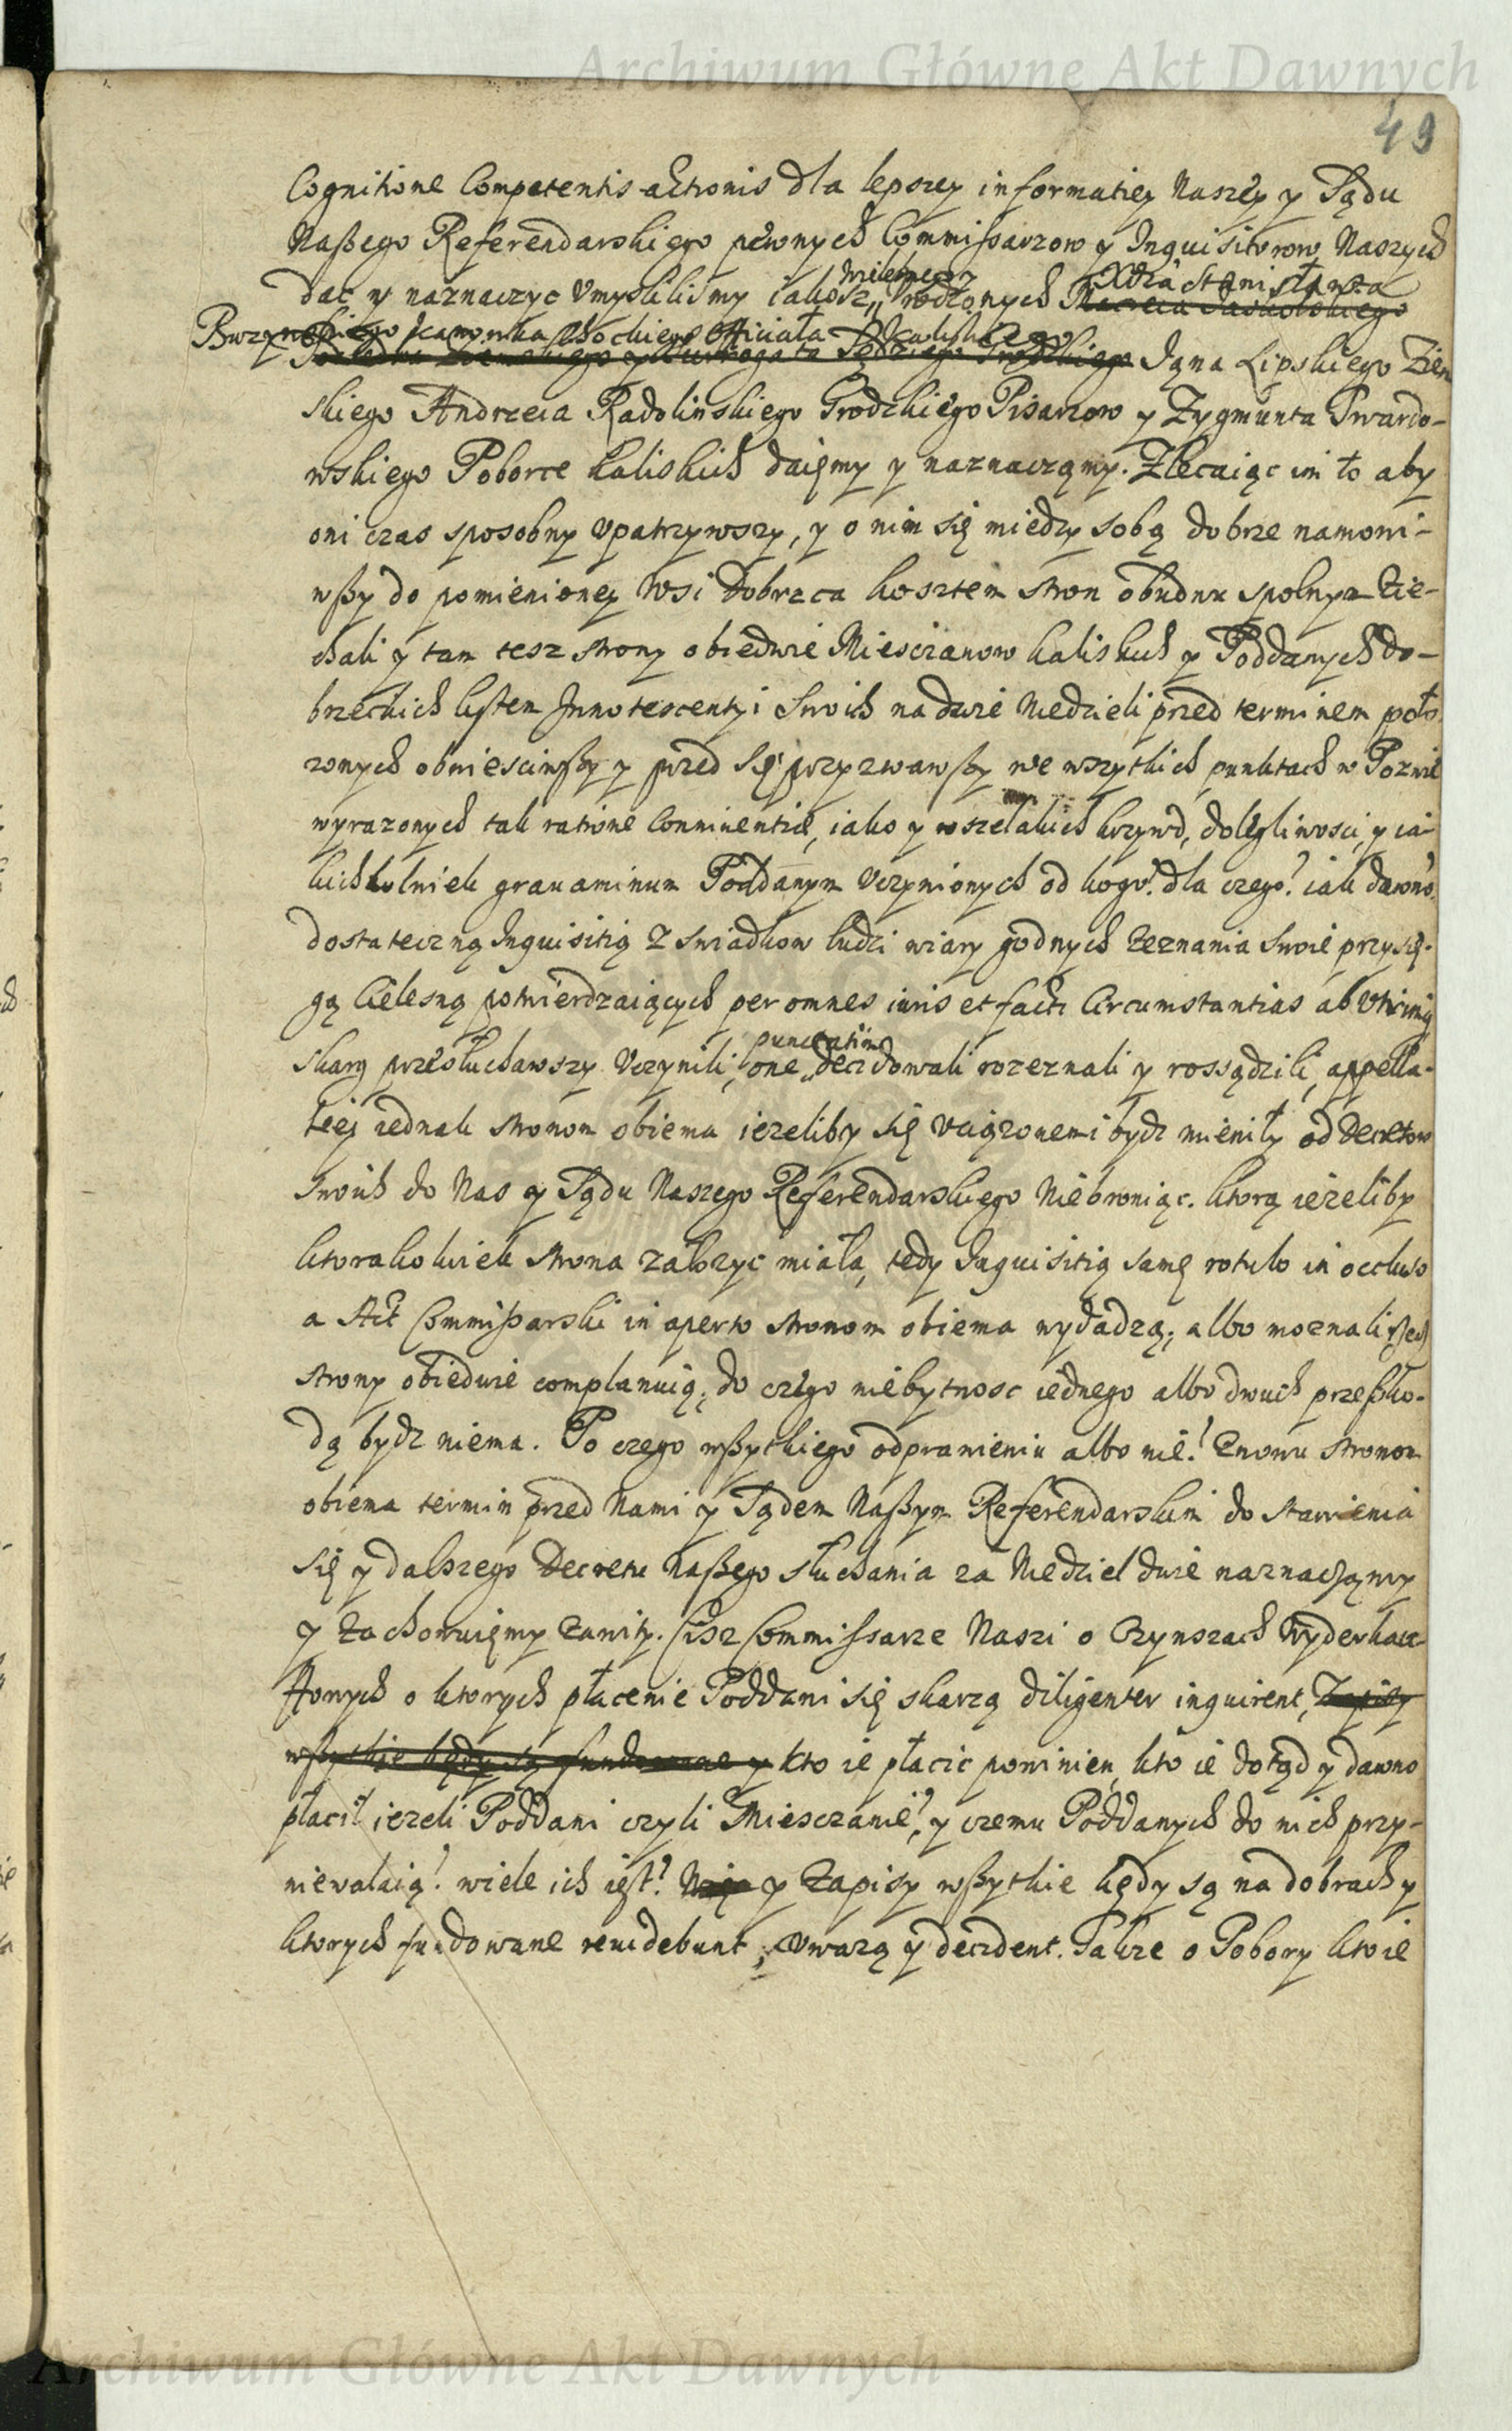 Archiwum Główne Akt Dawnych
49
Cognitione Competentis actionis dla lepszey informatiey Naszey y Sądu
Naßego Referendarskiego pewnych Commißarzow y Inquisitorow Naszych
Wielebnego y Xdza Stanisława
dac y naznaczyc Vmyslilismy iakosz Vrodzonych
kanonika Officiała Kaliskiego
Jgna Lipskiego Ziem
skiego Andrzeia Radolinskiego Grodzkiego Pisarzow y Zygmunta Twardo-
wskiego Poborce kaliskich daięmy y naznaczamy. Zlecaiąc im to aby
oni czas sposobny vpatrzywszy, y o nim się miedzy sobą dobrze namowi-
wßy do pomienioney Wsi Dobrzca kosztem stron obudwu spolnym Zie-
chali y tam tesz strony obiedwie Miesczanow kaliskich y Poddanych Do-
brzeckich listem Innotescentyi Swoich na dwie Niedzieli przed terminem poło
zonych obwiesciwßy y przed się przyzwawßy we wszytkich punktach w Pozwie
wyrazonych tak ratione Conniventiæ, iako y wszelakich krzywd, dolęgliwosci, y ia-
kichkolwiek grauaminum Poddanym Vczynionych od kogo? dla czego? iak dawno?
dostateczną Inquisitią z swiadkow ludzi wiary godnych zeznania swoie przysię-
gą Cielesną potwierdzaiących per omnes iuris et facti Circumstantias ab vtrinq
punctatim
skarg przesłuchawszy Vczynili, one decidowali rozeznali y rossądzili, appella-
tiej iednak stronom obiema iezeliby się vciązonemi bydz mieniły od Decretow
Swoich do Nas y Sądu Naszego Referendarskiego Niebroniąc. ktorą iezeliby
ktorakolwiek strona załozyc miała, tedy Inquisitią samę rotulo in occluso
a Act Commißarski in aperto stronom obiema wydadzą, albo moznali rzecz
strony obiedwie complanuią; do czego niebytnosc iednego albo dwuch przeßko-
dą bydz niema. Po czego wßytkiego odprawieniu albo nie! Znowu stronom
obiema termin przed Nami y Sądem Naßym Referendarskim do stawienia
się y dalszego Decretu Naßego słuchania za Niedziel dwie naznaczamy
y zachowuięmy zawity. Cisz Commissarze Naszi o Czynszach Wyderkaf-
fowych o ktorych płacenie Poddani się skarzą diligenter inquirent, Zapisy
wßytkie kędy są fundowane y kto ie płacic powinien, kto ie dotąd y dawno
płacił iezeli Poddani czyli Miesczanie?, y czemu Poddanych do nich przy-
niewalaią! wiele ich iest? y Zapisy wßytkie kędy są na dobrach y
ktorych fundowane reuidebunt, Vwazą y decident. Takze o Pobory kto ie
Archiwum Główne Akt Dawnych